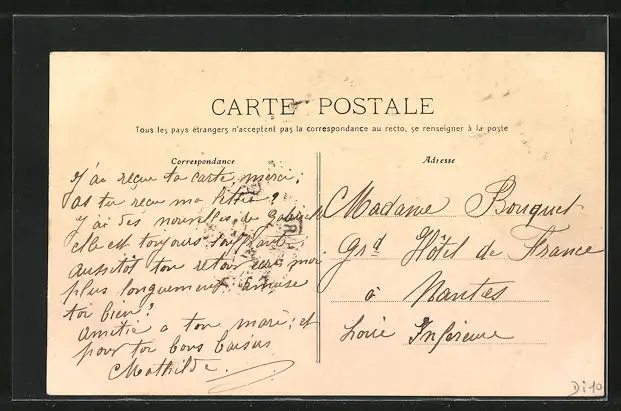 CARTE POSTALE
Tous les pays étrangers n'acceptent pas la correspondance au recto, se renseigner à la poste
Correspondance
J'ai reçue ta carte merci,
as tu reçu ma lettre ?
J'ai des nouvelles de
elle est toujours
Aussitôt ton retour
plus longuement amuse
toi bien !
Amitié a ton mari, et
pour toi bons baisers
Mathilde.
Adresse
Madame Bouquet
Grd Hôtel de France
à Nantes
Loire Inférieure
Di10